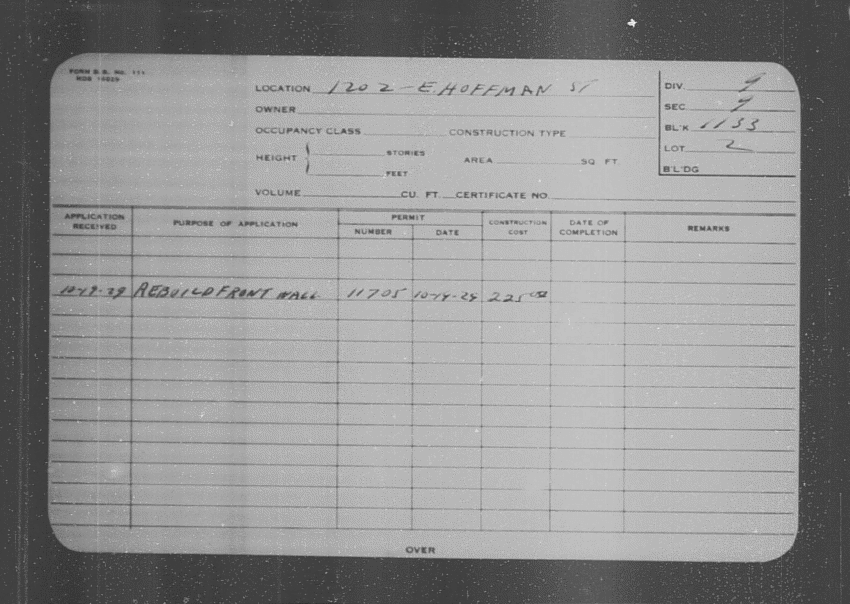 FORM B. B. No. 111
LOCATION 1202 - E. HOFFMAN ST
DIV. 9
OWNER
SEC 9
OCCUPANCY CLASS CONSTRUCTION TYPE
BL'K 1133
HEIGHT STORIES FEET AREA SQ FT.
LOT 2
B'L'DG
VOLUME CU. FT. CERTIFICATE NO.
APPLICATION RECEIVED PURPOSE OF APPLICATION PERMIT NUMBER DATE CONSTRUCTION COST DATE OF COMPLETION REMARKS
10-19-29 REBUILD FRONT WALL 11705 10-19-29 225 00
OVER